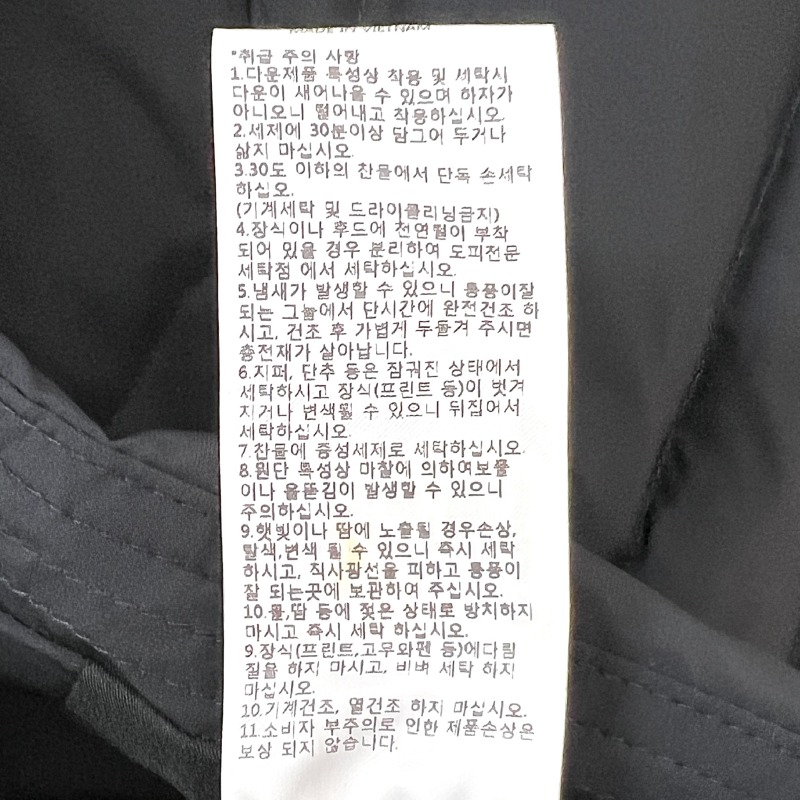 MADE IN VIETNAM
*취급 주의 사항
1.다운제품 특성상 착용 및 세탁시
다운이 새어나올 수 있으며 하자가
아니오니 떨어내고 착용하십시오.
2.세제에 30분이상 담그어 두거나
삶지 마십시오.
3.30도 이하의 찬물에서 단독 손세탁
하십오.
(기계세탁 및 드라이클리닝금지)
4.장식이나 후드에 천연털이 부착
되어 있을 경우 분리하여 모피전문
세탁점 에서 세탁하십시오.
5.냄새가 발생할 수 있으니 통풍이잘
되는 그늘에서 단시간에 완전건조 하
시고, 건조 후 가볍게 두들겨 주시면
충전재가 살아납니다.
6.지퍼, 단추 등은 잠궈진 상태에서
세탁하시고 장식(프린트 등)이 벗겨
지거나 변색될 수 있으니 뒤집어서
세탁하십시오.
7.찬물에 중성세제로 세탁하십시오.
8.원단 특성상 마찰에 의하여보풀
이나 올뜯김이 발생할 수 있으니
주의하십시오.
9.햇빛이나 땀에 노출될 경우손상,
탈색,변색 될 수 있으니 즉시 세탁
하시고, 직사광선을 피하고 통풍이
잘 되는곳에 보관하여 주십시오.
10.물,땀 등에 젖은 상태로 방치하지
마시고 즉시 세탁 하십시오.
9.장식(프린트,고무와펜 등)에다림
질을 하지 마시고, 비벼 세탁 하지
마십시오.
10.기계건조, 열건조 하지 마십시오.
11.소비자 부주의로 인한 제품손상은
보상 되지 않습니다.